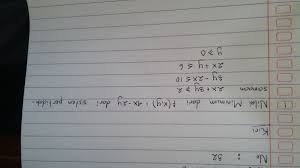 No : 32
Kiri
Nilai Minimum dari f(x,y) = 4x-2y dari sistem pertidak-
samaan
2x + 3y ≥ 2
3y - 2x ≤ 10
2x + y ≤ 6
y ≥ 0